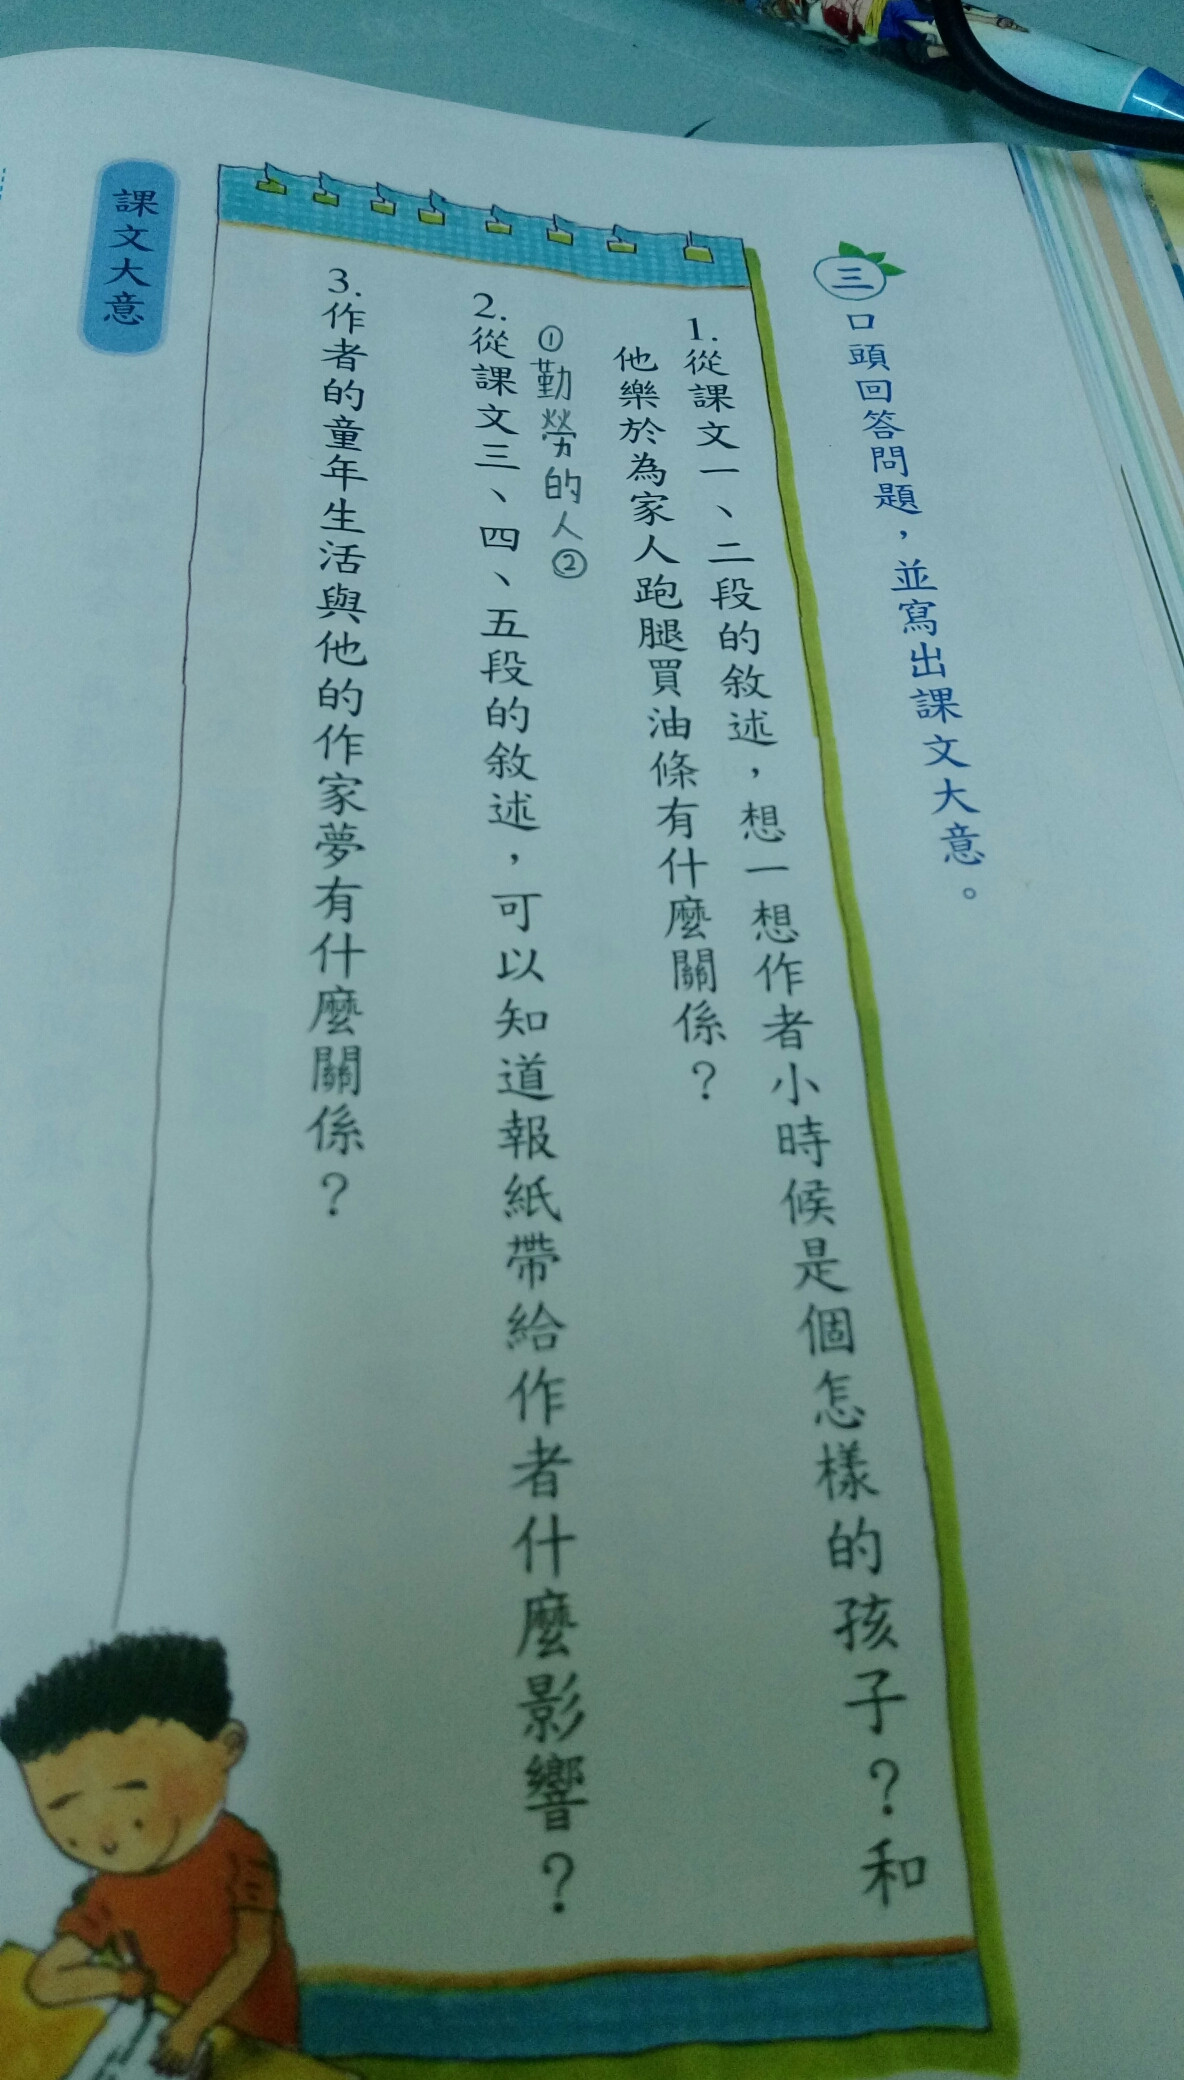 三 口頭回答問題，並寫出課文大意。
1.從課文一、二段的敘述，想一想作者小時候是個怎樣的孩子？和
他樂於為家人跑腿買油條有什麼關係？
①勤勞的人②
2.從課文三、四、五段的敘述，可以知道報紙帶給作者什麼影響？
3.作者的童年生活與他的作家夢有什麼關係？
課文大意